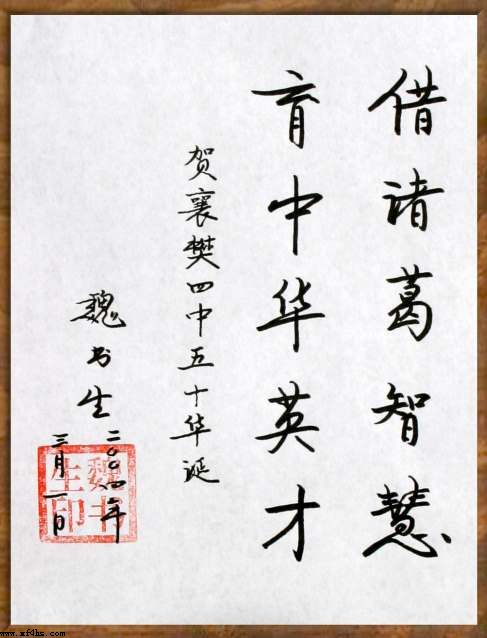 借诸葛智慧
育中华英才
贺襄樊四中五十华诞
魏书生
二〇〇四年
三月一日
魏书生印
www.xf4hs.com